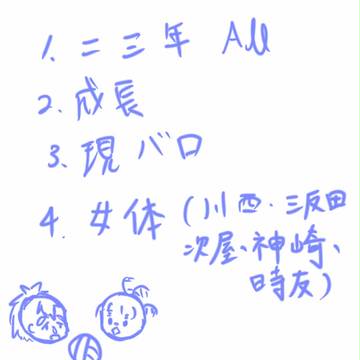 1. 二三年 All
2. 成長
3. 現バロ
4. 女体 (川西・三反田
次屋、神崎、
時友)